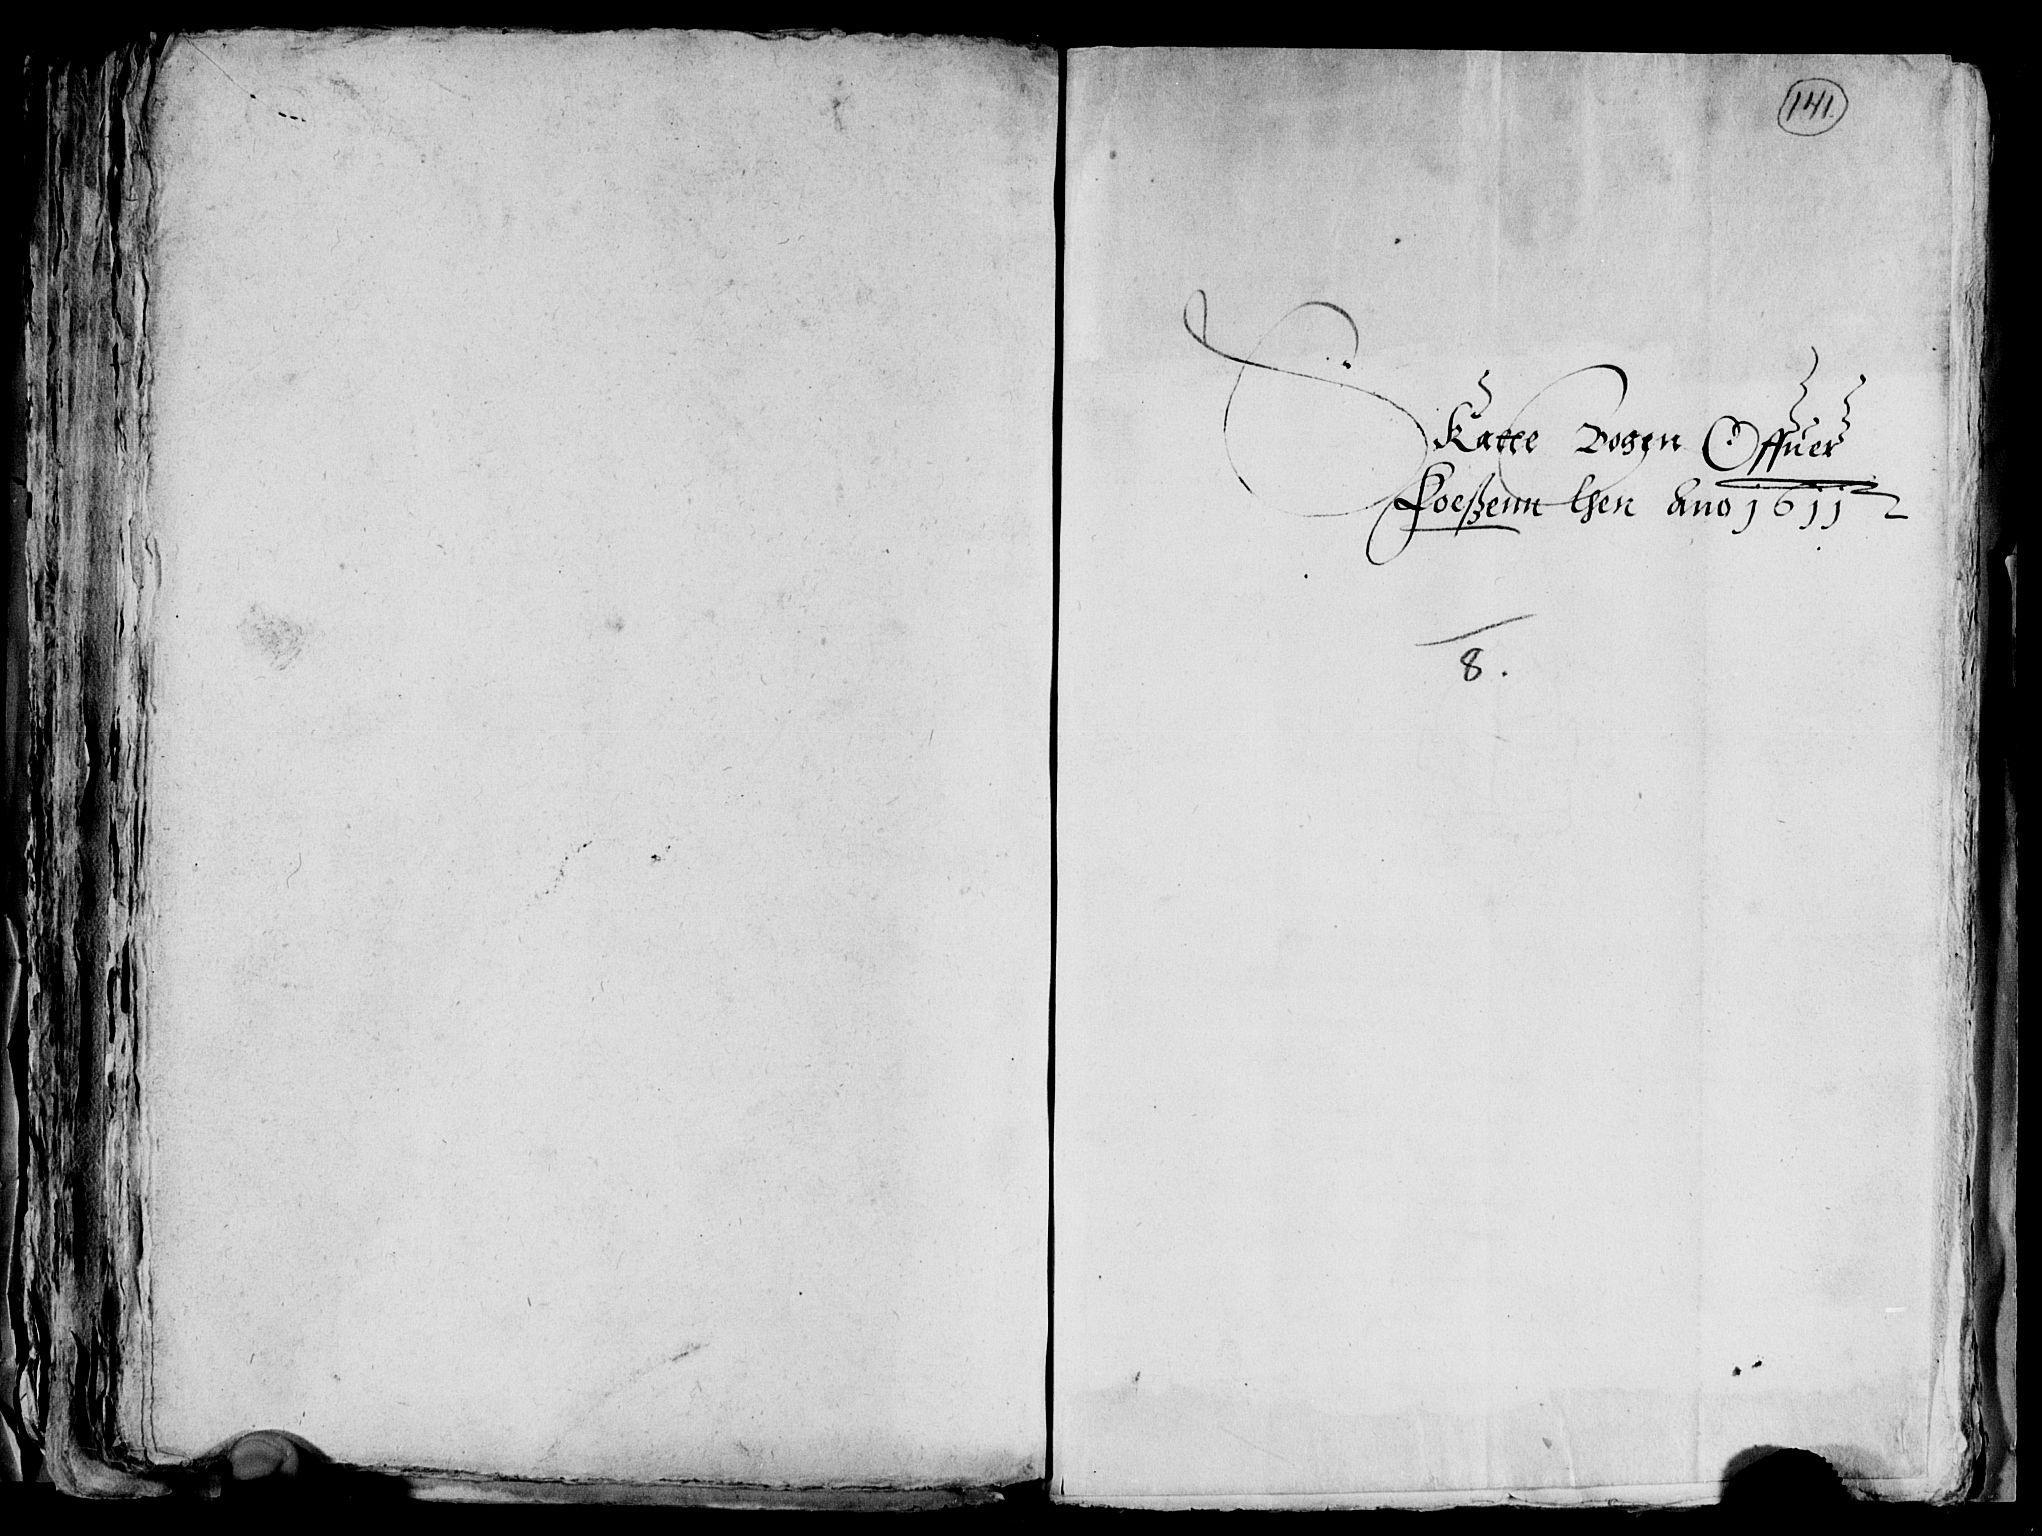 141.
Skatte Bogen Offuer
Foeßenn Len Ano 1611
8.